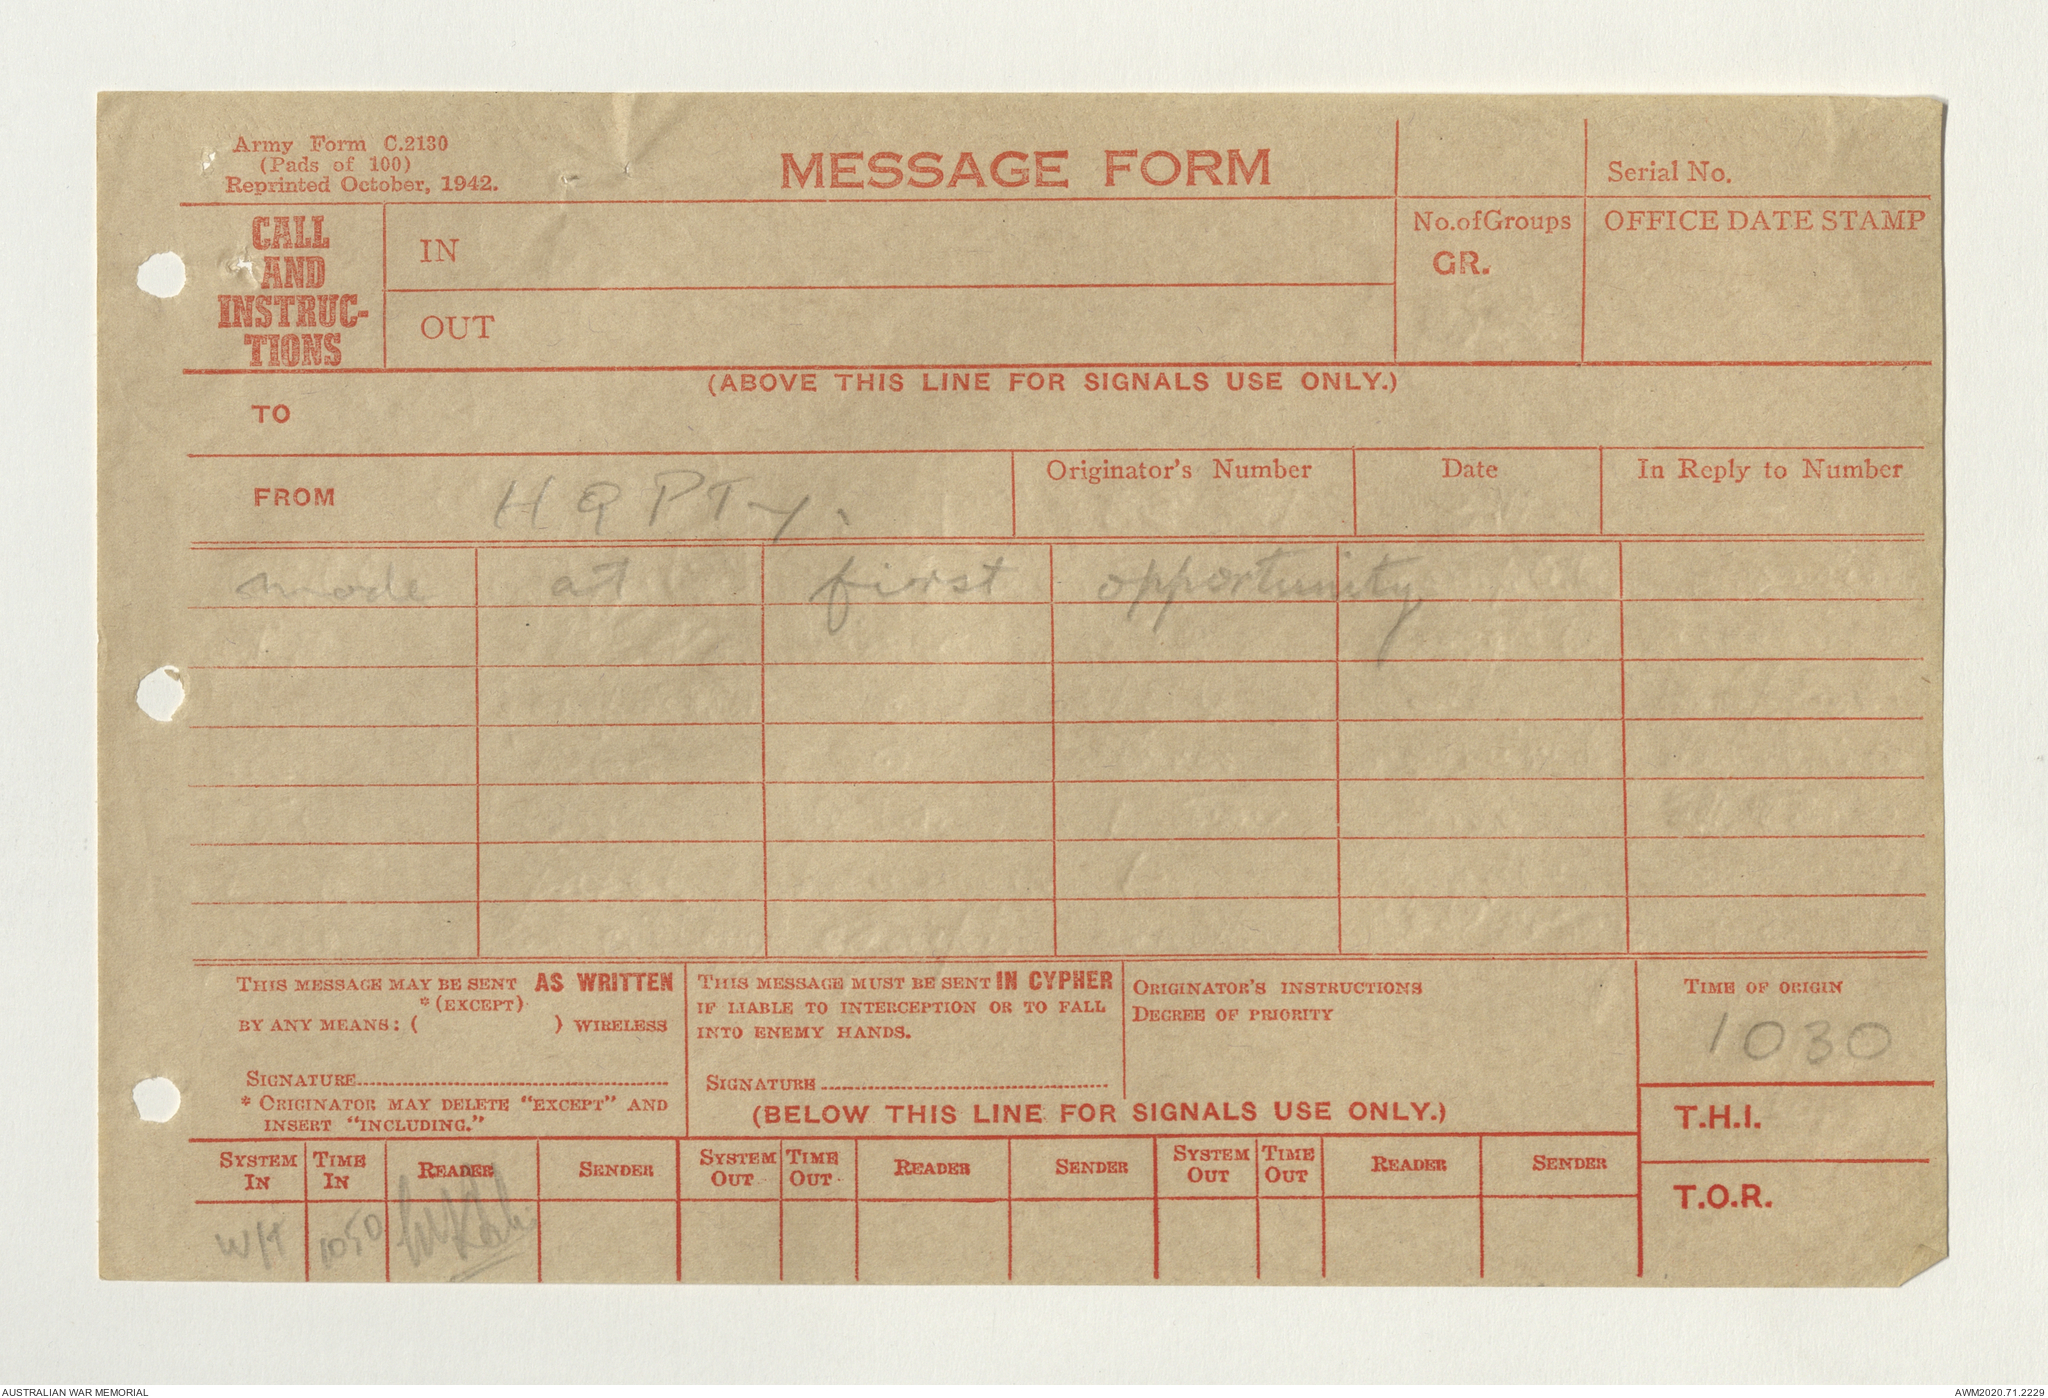 Army Form C.2130
(Pads of 100)
Reprinted October, 1942.
MESSAGE FORM
Serial No.
CALL
AND
INSTRUC-
TIONS
IN
OUT
No.ofGroups
GR.
OFFICE DATE STAMP
(ABOVE THIS LINE FOR SIGNALS USE ONLY.)
TO
FROM H Q P T y.
Originator's Number
Date
In Reply to Number
made at first opportunity
THIS MESSAGE MAY BE SENT AS WRITTEN
*(EXCEPT)
BY ANY MEANS: ( ) WIRELESS
SIGNATURE
* ORIGINATOR MAY DELETE "EXCEPT" AND
INSERT "INCLUDING."
THIS MESSAGE MUST BE SENT IN CYPHER
IF LIABLE TO INTERCEPTION OR TO FALL
INTO ENEMY HANDS.
SIGNATURE
ORIGINATOR'S INSTRUCTIONS
DEGREE OF PRIORITY
TIME OF ORIGIN
1030
(BELOW THIS LINE FOR SIGNALS USE ONLY.)
T.H.I.
T.O.R.
SYSTEM IN TIME IN READER SENDER SYSTEM OUT TIME OUT READER SENDER SYSTEM OUT TIME OUT READER SENDER
W/T 1050
AUSTRALIAN WAR MEMORIAL
AWM2020.71.2229